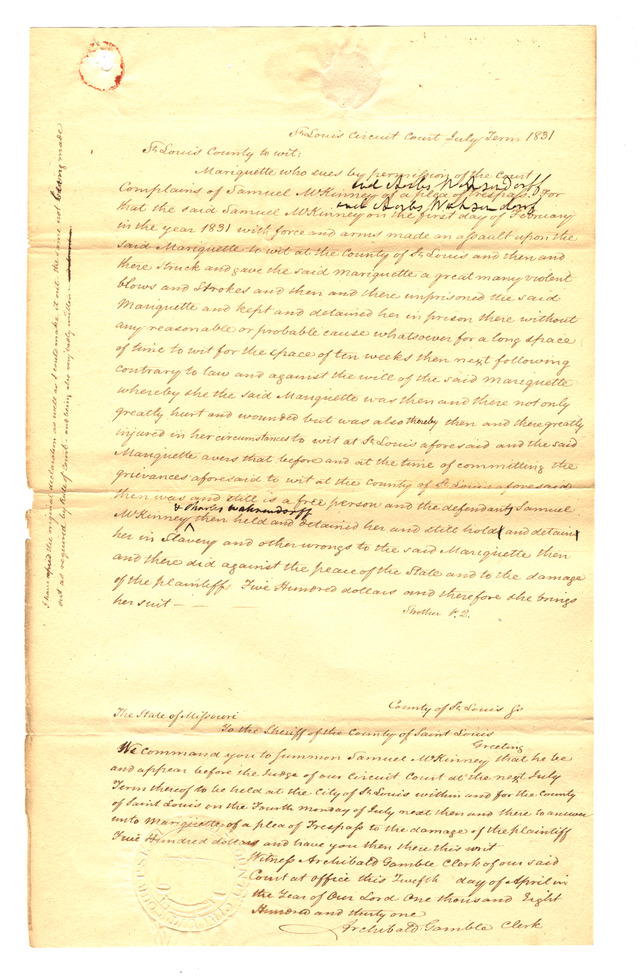 St. Louis Circuit Court July Term 1831
St. Louis County to wit:
Marguette who sues by permission of the Court
and Charles Wahrendorff
Complains of Samuel McKinney of a plea of trespass. For
and Charles Wahrendorff
that the said Samuel McKinney on the first day of February
in the year 1831 with force and arms made an assault upon the
said Marguette to wit at the County of St. Louis and then and
there struck and gave the said Marguette a great many violent
blows and strokes and then and there imprisoned the said
Marguette and kept and detained her in prison there without
any reasonable or probable cause whatsoever for a long space
of time to wit for the space of ten weeks then next following
contrary to law and against the will of the said Marguette
whereby she the said Marguette was then and there not only
greatly hurt and wounded but was also thereby then and there greatly
injured in her circumstances to wit at St. Louis aforesaid and the said
Marguette avers that before and at the time of committing the
grievances aforesaid to wit at the County of St. Louis aforesaid
then was and still is a free person and the defendants Samuel
& Charles Wahrendorff
McKinney then held and detained her and still hold and detain
her in Slavery and other wrongs to the said Marguette then
and there did against the peace of the State and to the damage
of the plaintiff Five Hundred dollars and therefore she brings
her suit —
Strother p. q.
I have the original declaration as well as I could make it out the same not being made
out as required by Rule of Court - and being also very badly written
The State of Missouri
County of St. Louis
To the Sheriff of the County of Saint Louis
Greeting
We command you to Summon Samuel McKinney that he be
and appear before the Judge of our Circuit Court at the next July
Term thereof to be held at the City of St. Louis within and for the County
of Saint Louis on the Fourth Monday of July next then and there to answer
unto Marguette of a plea of Trespass to the damage of the plaintiff
Five Hundred dollars and have you then there this writ
Witness Archibald Gamble Clerk of our said
Court at office this Twelfth day of April in
the Year of Our Lord One thousand Eight
Hundred and thirty one
Archibald Gamble Clerk